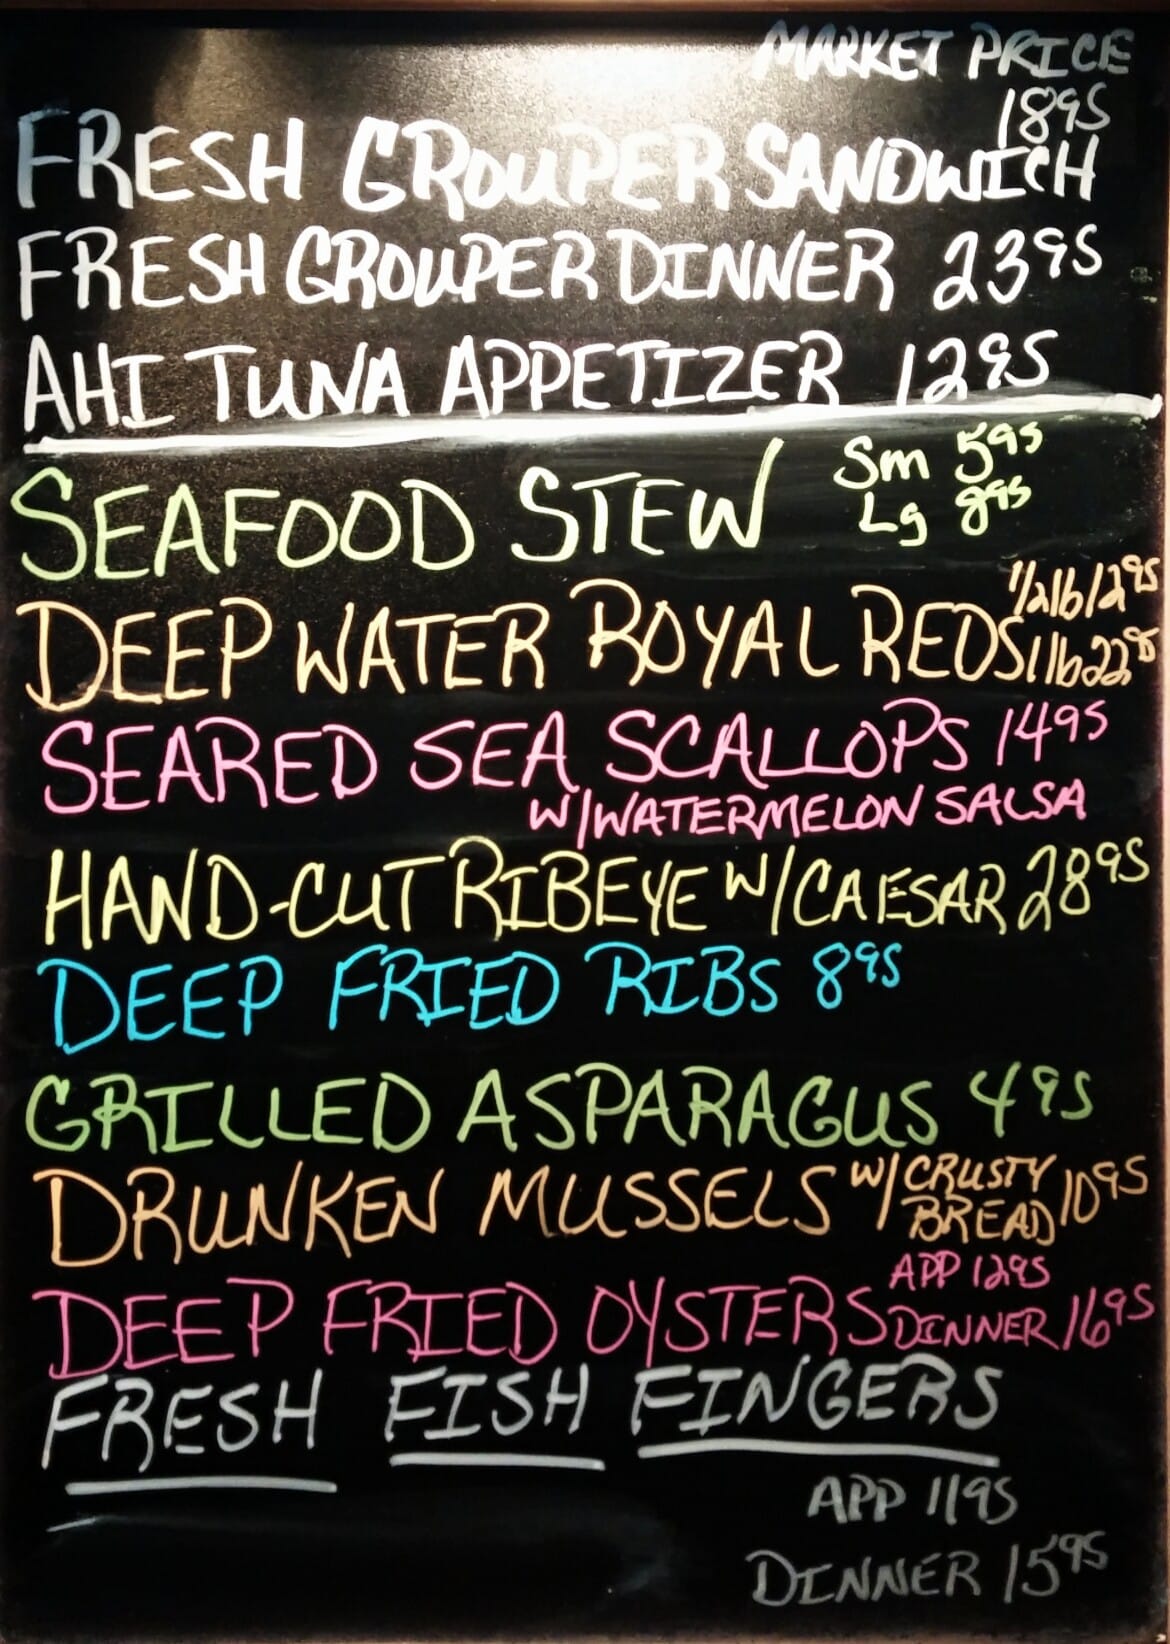 MARKET PRICE
1895
FRESH GROUPER SANDWICH
FRESH GROUPER DINNER 2395
AHI TUNA APPETIZER 1295
SEAFOOD STEW
Sm 595
Lg 895
1/2lb 1295
DEEP WATER ROYAL REDS 1lb 2295
SEARED SEA SCALLOPS 1495
W/WATERMELON SALSA
HAND-CUT RIBEYE W/CAESAR 2895
DEEP FRIED RIBS 895
GRILLED ASPARAGUS 495
DRUNKEN MUSSELS W/CRUSTY
BREAD 1095
APP 1295
DEEP FRIED OYSTERS DINNER 1695
FRESH FISH FINGERS
APP 1195
DINNER 1595